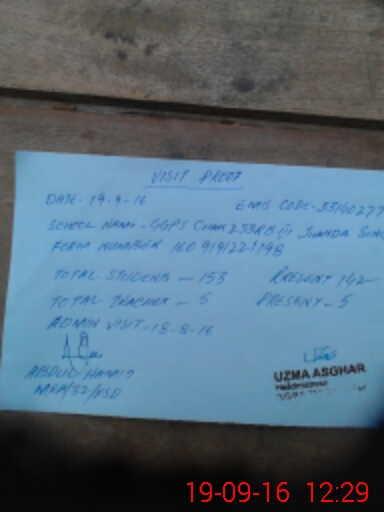 VISIT PROOF
DATE- 19-9-16 EMIS CODE-
SCHOOL NAME- GGPS CHAK 233RB
FORM NUMBER
TOTAL STUDENTS - 153 PRESENT 142
TOTAL TEACHER - 5 PRESENT - 5
ADMIN VISIT-18-8-16
ABDUL HAMID
MEA/32/FSD
UZMA ASGHAR
19-09-16 12:29